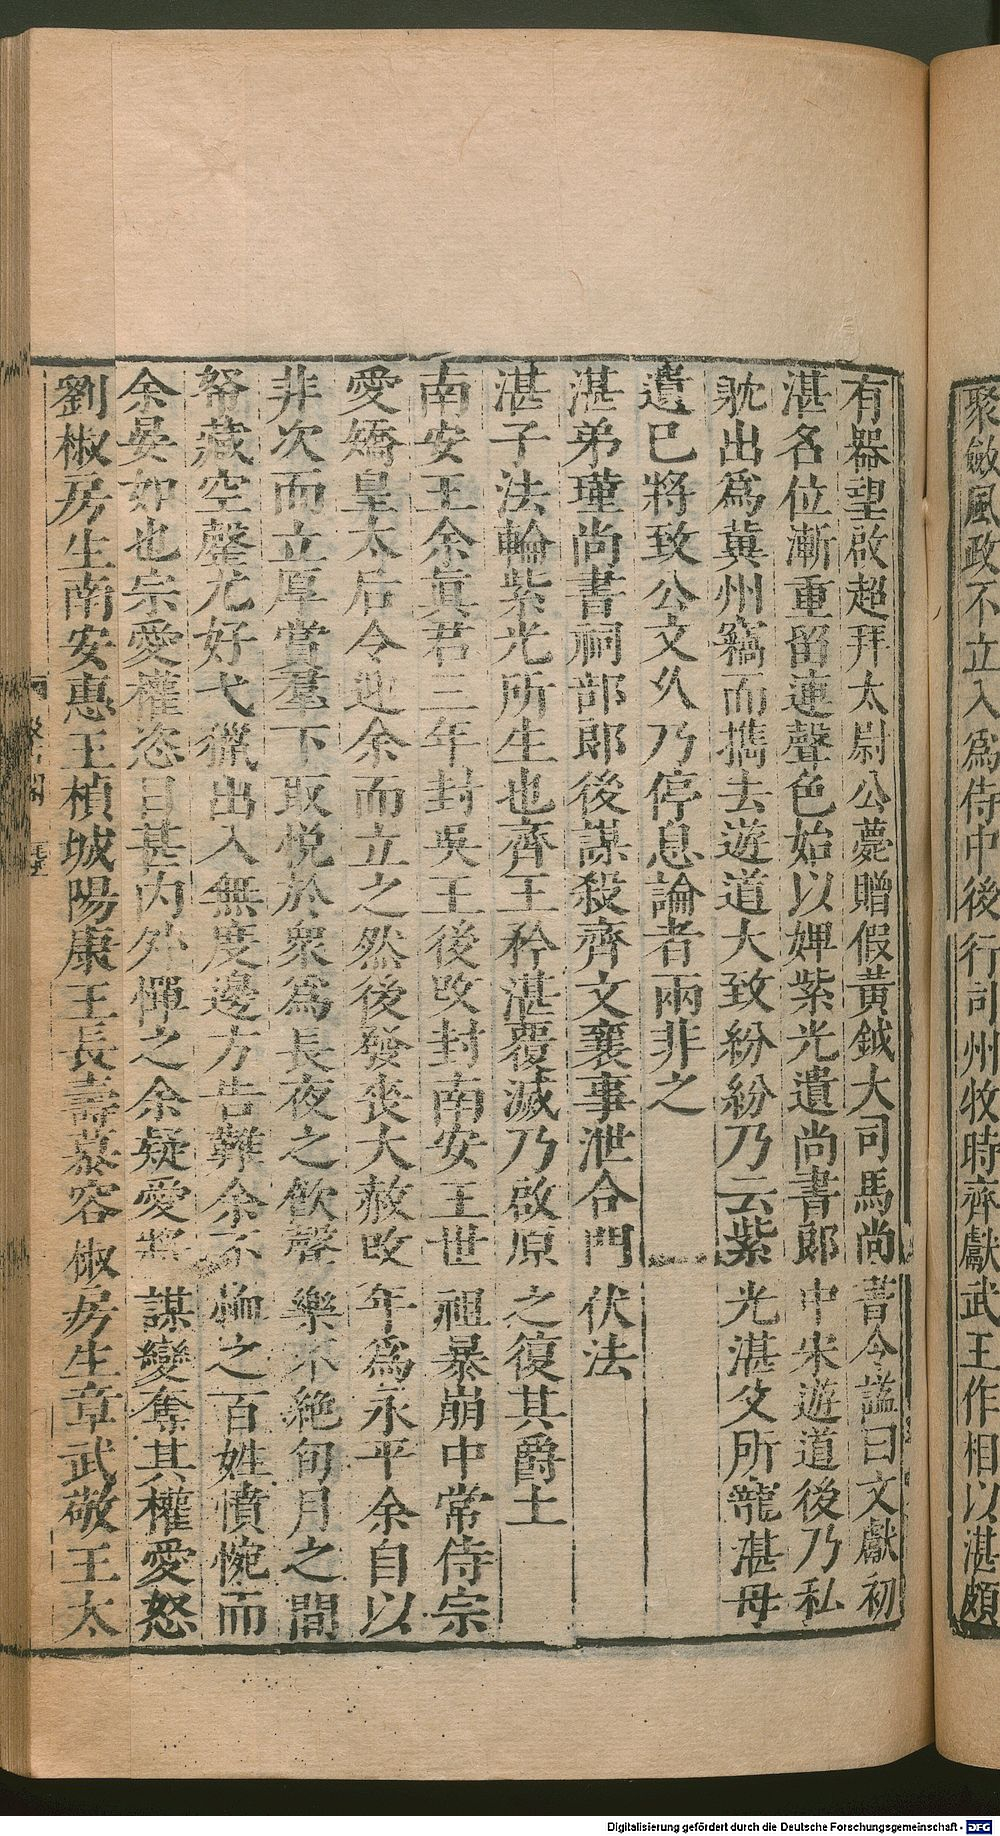 聚斂風政不立入爲侍中後行司州牧時齊獻武王作相以湛頗
有器望啟超拜太尉公薨贈假黃鉞大司馬尚書令謚曰文獻初
湛名位漸重留連聲色始以婢紫光遺尚書郎中宋遊道後乃私
躭出爲冀州竊而攜去遊道大致紛紛乃云紫光湛父所寵湛母
遺已將致公文乆乃停息論者兩非之
湛弟瑾尚書祠部郎後謀殺齊文襄事泄合門伏法
湛子法輪紫光所生也齊王矜湛覆滅乃啟原之復其爵土
南安王余眞君三年封吳王後改封南安王世祖暴崩中常侍宗
愛矯皇太后令迎余而立之然後發喪大赦改年爲永平余自以
非次而立厚賞羣下取悅於衆爲長夜之飲聲樂不絶旬月之間
帑藏空罄尤好弋獵出入無度邊方告難余不恤之百姓憤惋而
余晏如也宗愛權恣日甚內外憚之余疑愛將謀變奪其權愛怒
劉椒房生南安惠王楨城陽康王長壽慕容椒房生章武敬王太
Digitalisierung gefördert durch die Deutsche Forschungsgemeinschaft - DFG